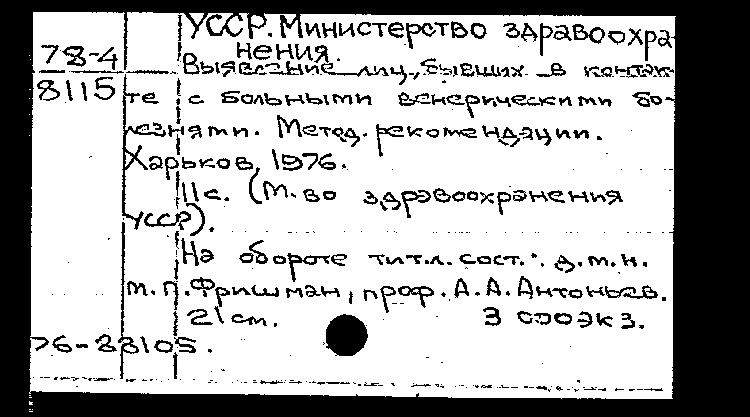 УССР. Министерство здравоохра-
нения.
78-4
Выявление лиц, бывших в контак-
8115
те с больными венерическими бо-
лезнями. Метод. рекомендации.
Харьков, 1976.
11с. (М-во здравоохранения
УССР).
На обороте тит.л. сост.: д.м.н.
М.П. Фришман, проф. А.А. Антоньев.
21 см. 3 500экз.
76-28105.